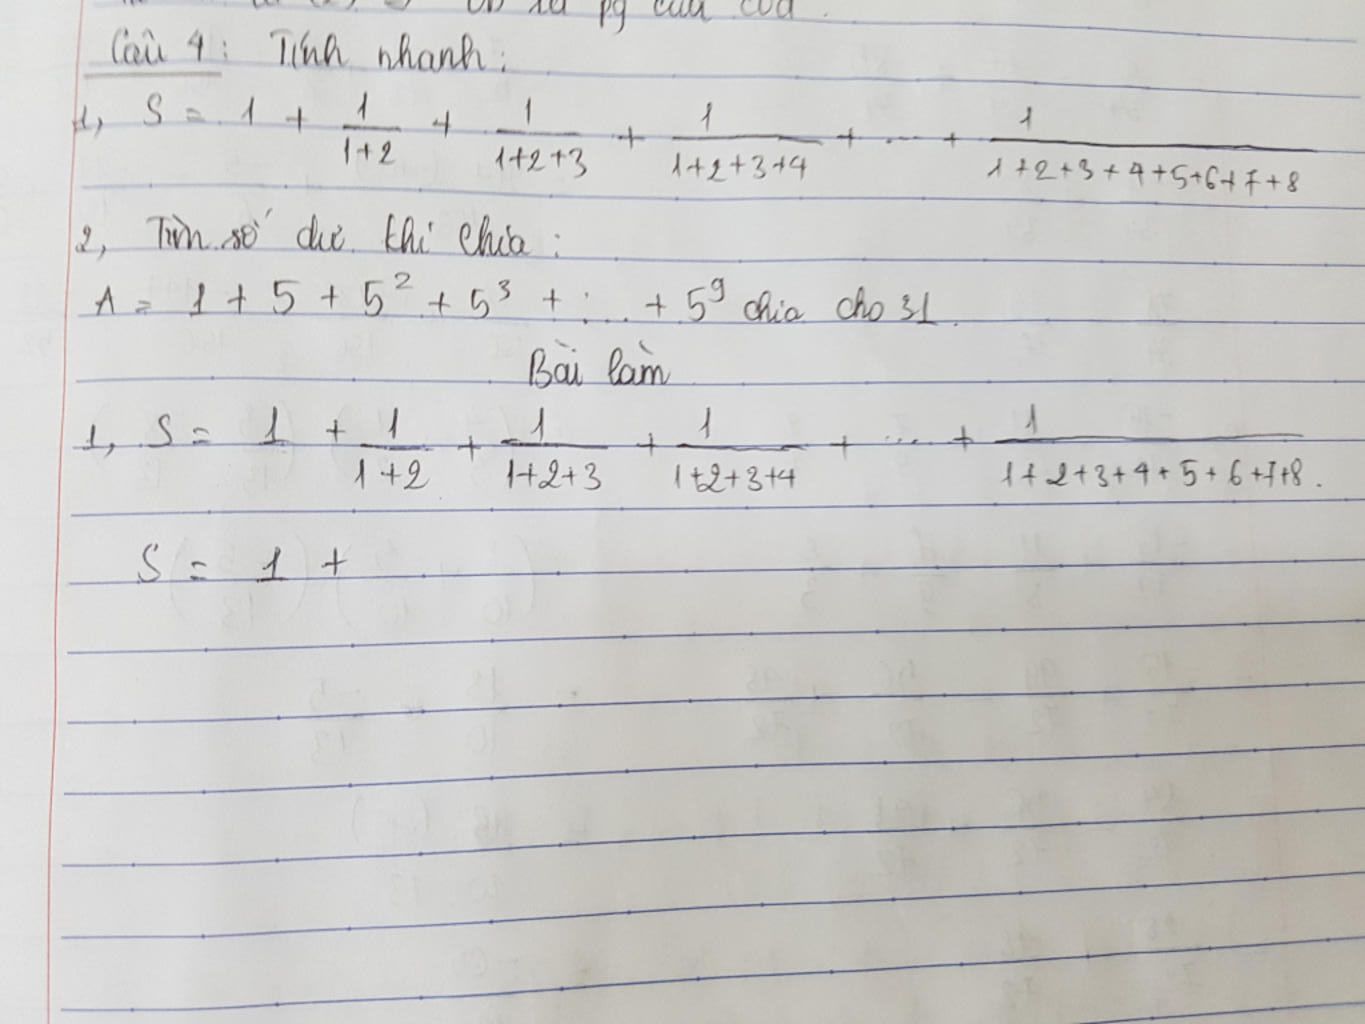 của
Câu 4: Tính nhanh:
1, S = 1 + 1/(1+2) + 1/(1+2+3) + 1/(1+2+3+4) + ... + 1/(1+2+3+4+5+6+7+8)
2, Tìm số dư khi chia:
A = 1 + 5 + 5² + 5³ + ... + 5⁹ chia cho 31.
Bài làm
1, S = 1 + 1/(1+2) + 1/(1+2+3) + 1/(1+2+3+4) + ... + 1/(1+2+3+4+5+6+7+8).
S = 1 +